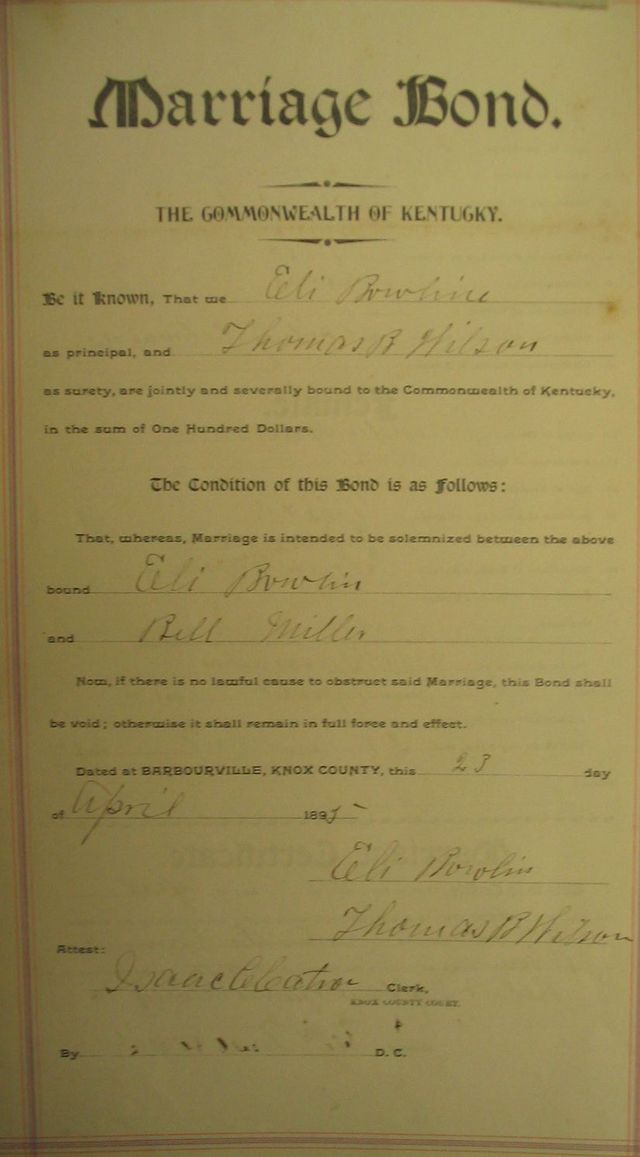 Marriage Bond.
THE COMMONWEALTH OF KENTUCKY.
Be it known, That we Eli Bowline
as principal, and Thomas B Wilson
as surety, are jointly and severally bound to the Commonwealth of Kentucky,
in the sum of One Hundred Dollars.
The Condition of this Bond is as Follows:
That, whereas, Marriage is intended to be solemnized between the above
bound Eli Bowlin
and Bell Miller
Now, if there is no lawful cause to obstruct said Marriage, this Bond shall
be void; otherwise it shall remain in full force and effect.
Dated at BARBOURVILLE, KNOX COUNTY, this 23 day
of April 1895
Eli Bowlin
Thomas B Wilson
Attest:
Isaac Clerk,
KNOX COUNTY COURT.
By D. C.